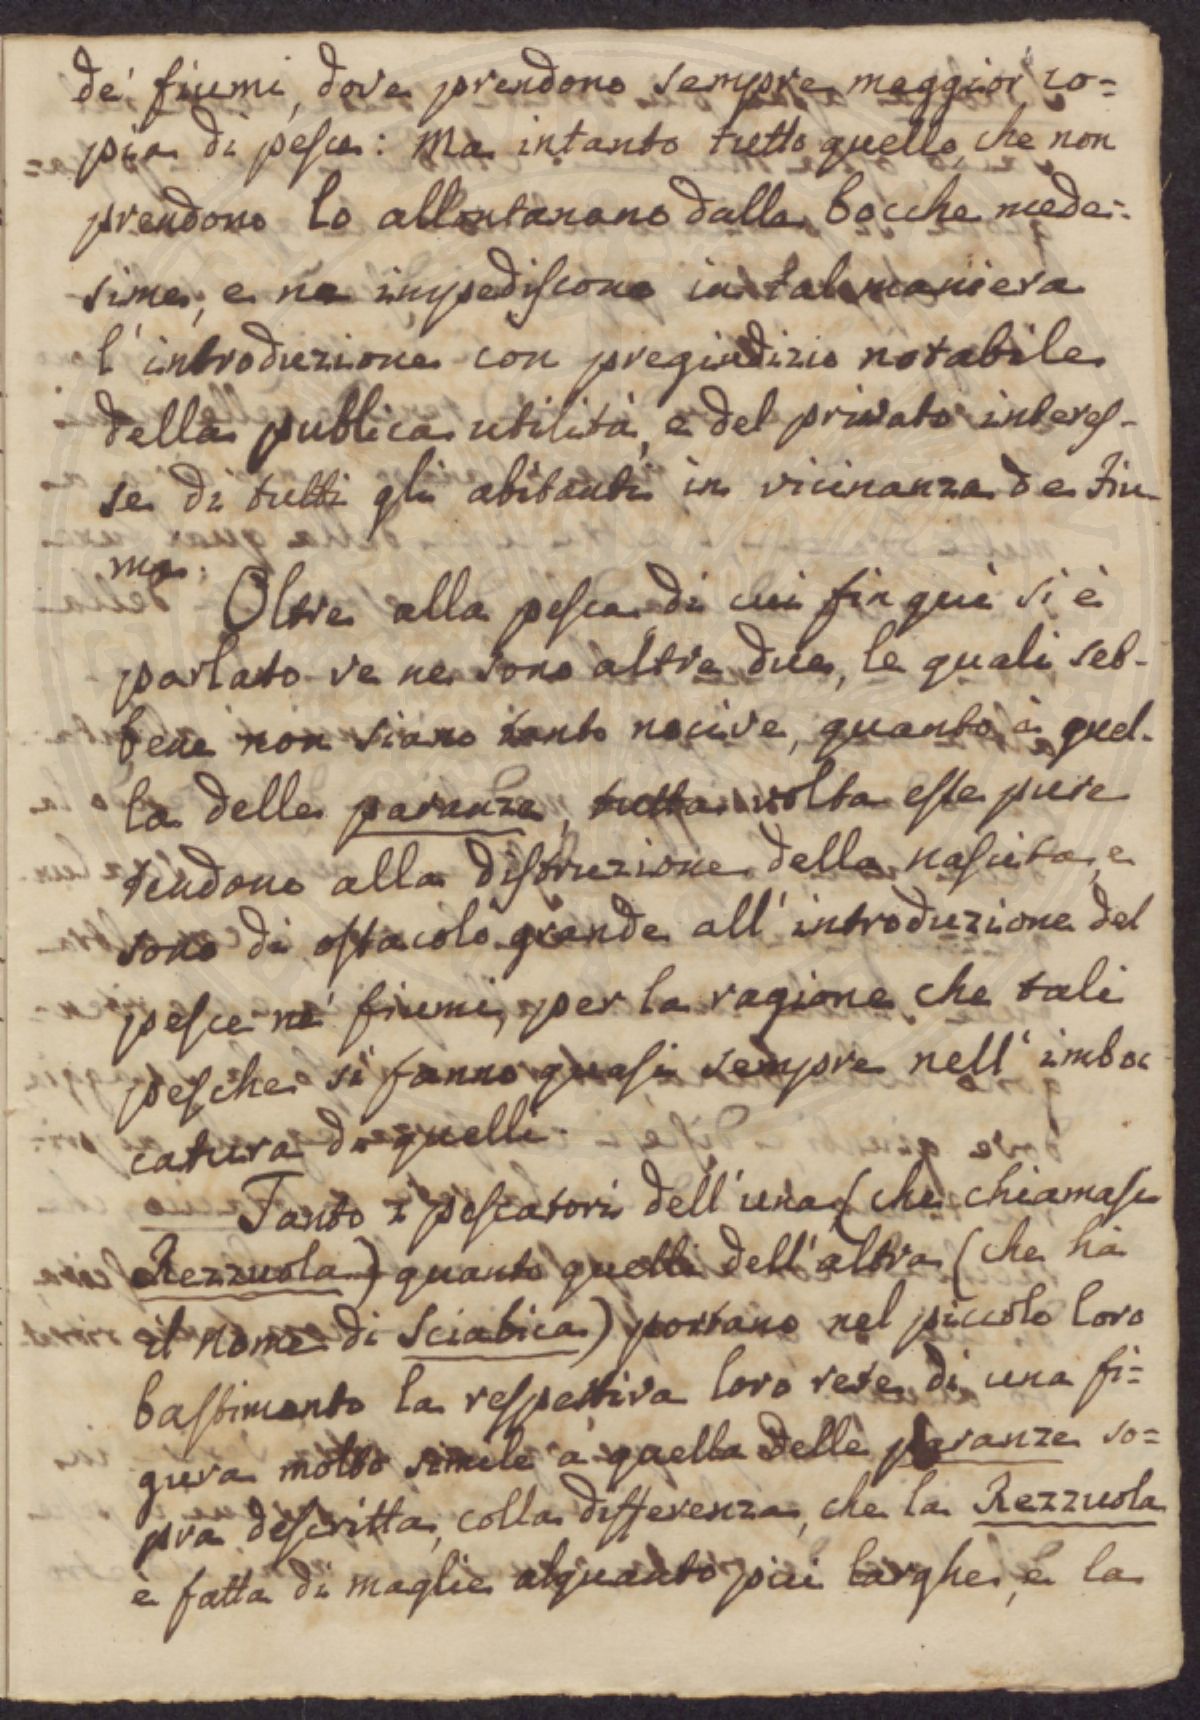 de' fiumi, dove prendono sempre maggior co=
pia di pesce: Ma intanto tutto quello, che non
prendono lo allontanano dalle bocche mede=
sime, e ne impediscono in tal maniera
l'introduzione con pregiudizio notabile
della publica utilità, e del privato interes-
se di tutti gli abitanti in vicinanza de Fiu
mi.
Oltre alla pesca di cui fin qui si è
parlato ve ne sono altre due, le quali seb-
bene non siano tanto nocive, quanto è quel-
la delle paranze, tutta volta esse pure
tendono alla distruzione della nascita, e
sono di ostacolo grande all'introduzione del
pesce ne' fiumi, per la ragione che tali
pesche si fanno quasi sempre nell'imboc
catura di quelli.
Tanto i pescatori dell'una (che chiamasi
Rezzuola) quanto quelli dell'altra (che hà
il nome di Sciabica) portano nel piccolo loro
bastimento la respettiva loro rete di una fi=
gura molto simile a quella delle paranze so=
pra descritta, colla differenza, che la Rezzuola
è fatta di maglie alquanto più larghe, e la